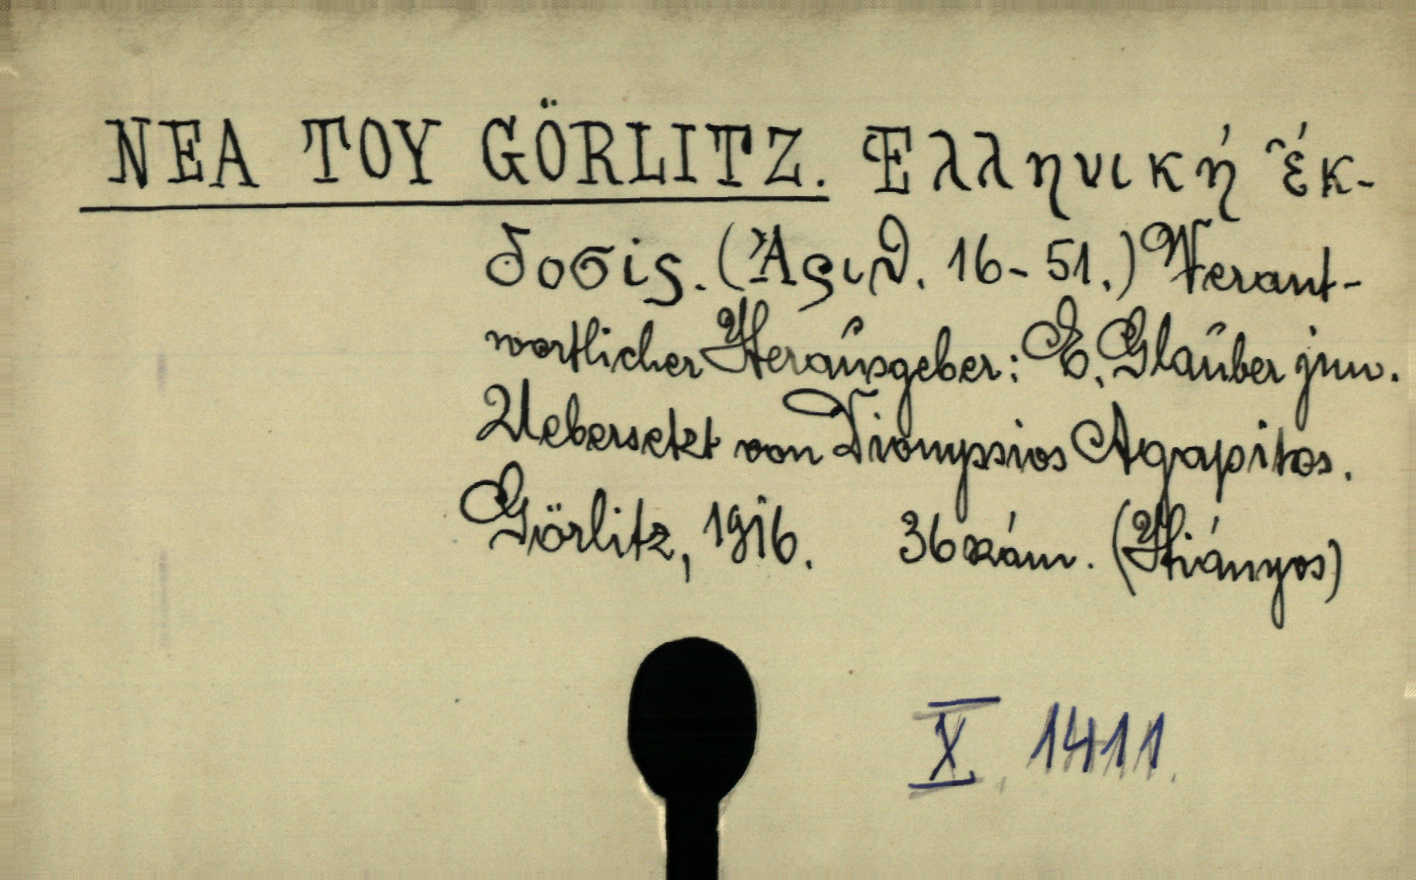 ΝΕΑ ΤΟΥ GÖRLITZ. Ἑλληνική ἕκ-
δοσις. (Ἀριθ. 16-51.) Verant-
wortlicher Herausgeber: E. Glauber jun.
Uebersetzt von Dionyssios Agapitos.
Görlitz, 1916. 36 szám. (Hiányos)
X. 1411.